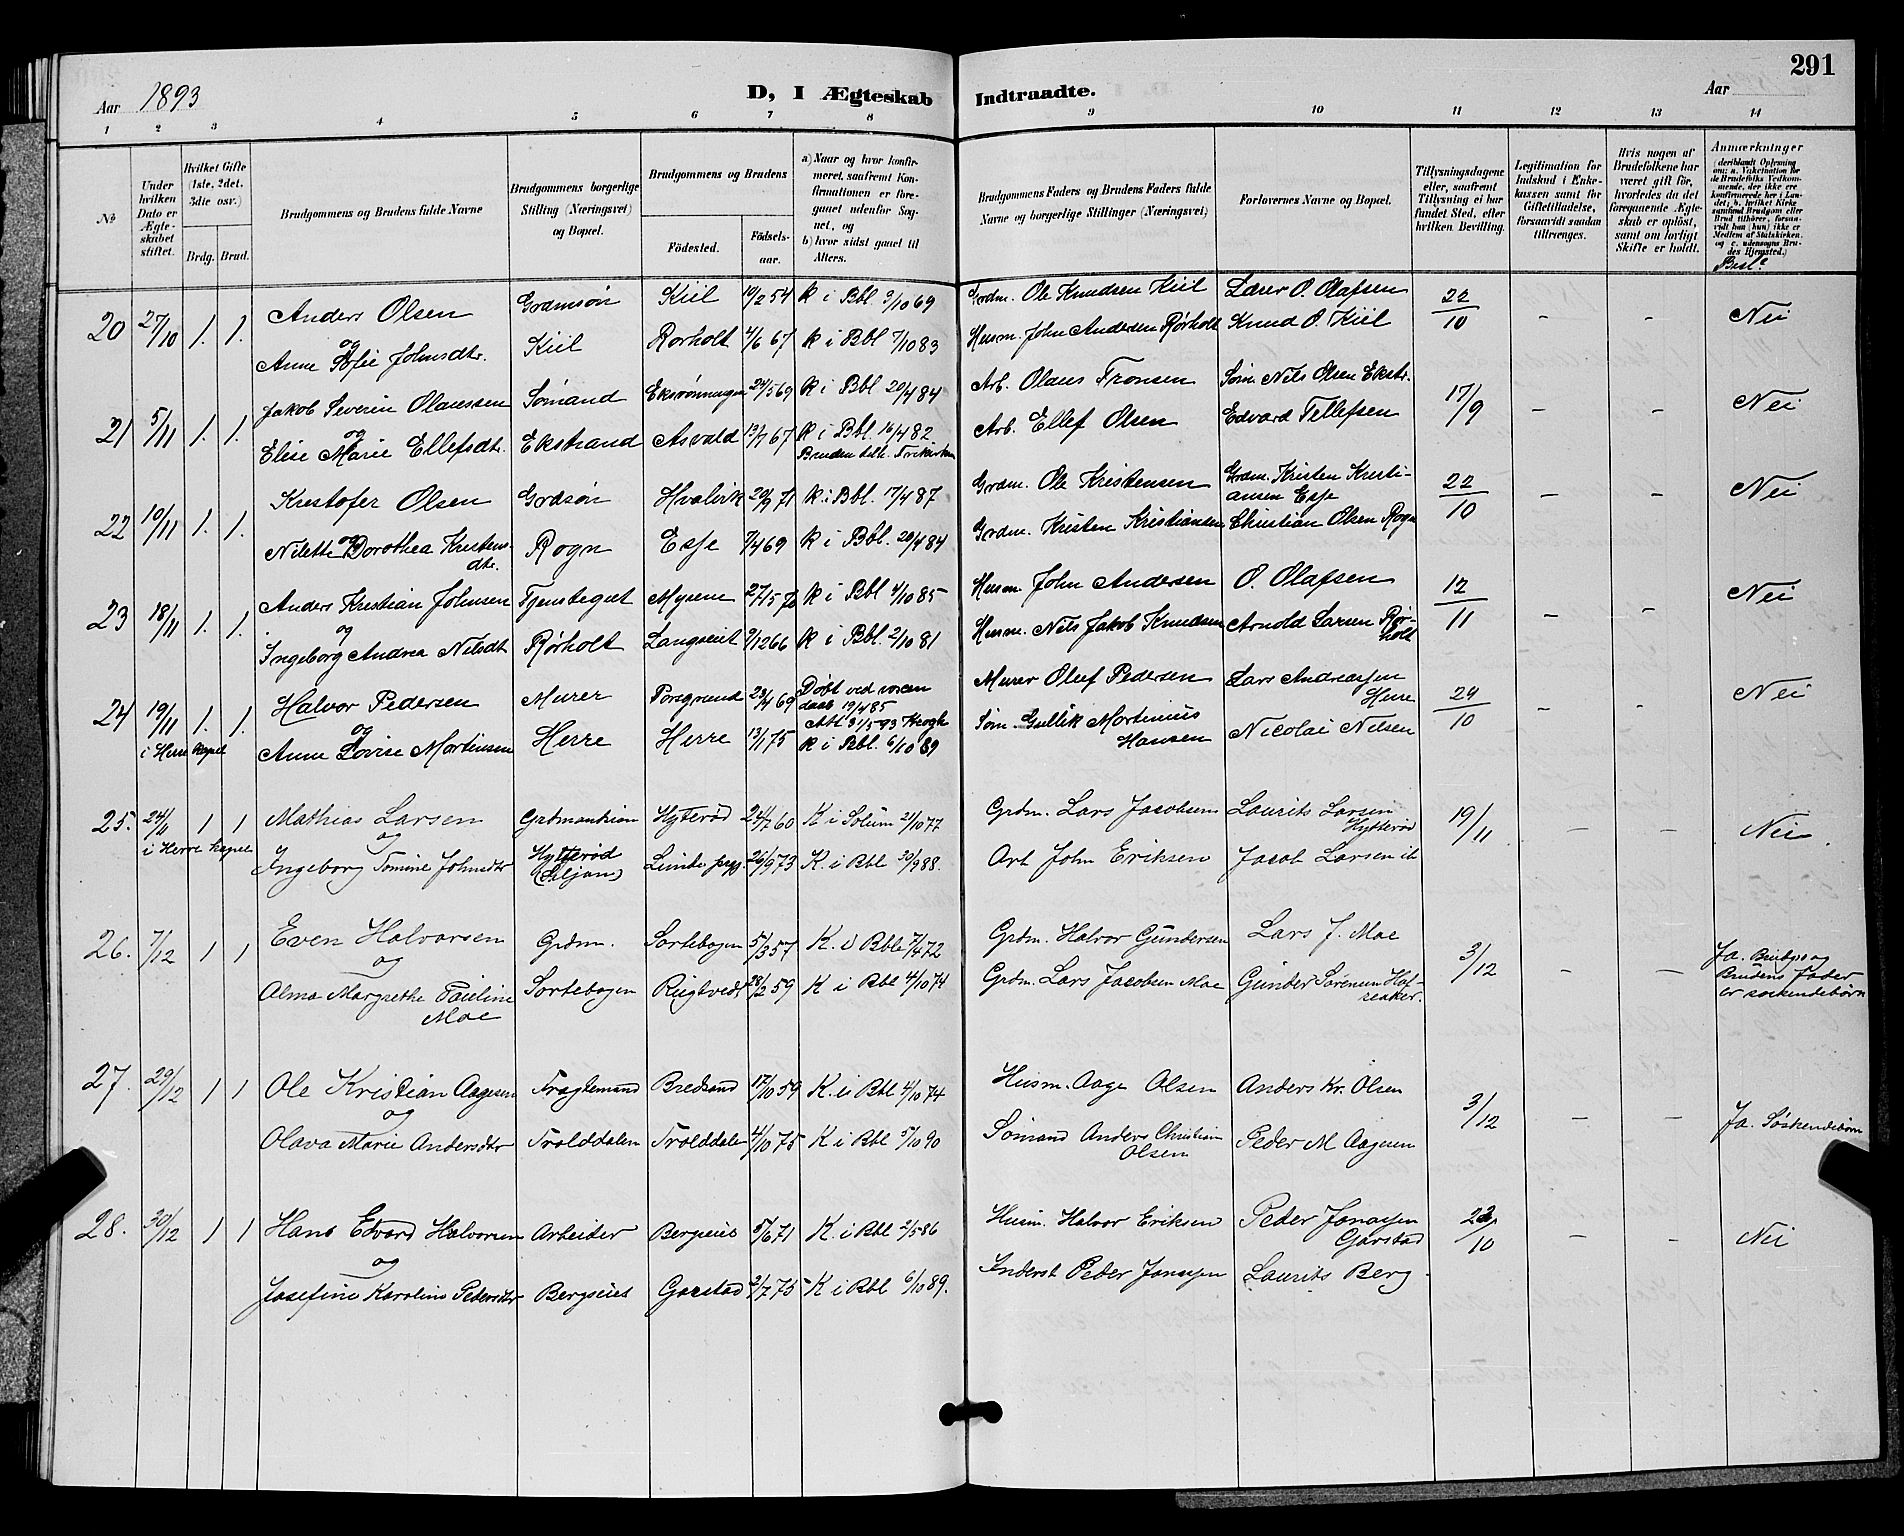 291
Aar 1893
D, I Ægteskab Indtraadte.
Aar
1 2 3 4 5 6 7 8 9 10 11 12 13 14
№
Under hvilken Dato er Ægteskabet stiftet.
Hvilket Gifte (1ste, 2det, 3die osv.)
Brdg. Brud.
Brudgommens og Brudens fulde Navne
Brudgommens borgerlige Stilling (Næringsvei) og Bopæl.
Brudgommens og Brudens
Fødested.
Fødselsaar.
a) Naar og hvor konfirmeret, saafremt Konfirmationen er foregaaet udenfor Sognet, og
b) hvor sidst gaaet til Alters.
Brudgommens Faders og Brudens Faders fulde Navne og borgerlige Stillinger (Næringsvei)
Forlovernes Navne og Bopæl.
Tillysningsdagene eller, saafremt Tillysning ei har fundet Sted, efter hvilken Bevilling.
Legitimation for Indskud i Enkekassen samt for Giftetilladelse, forsaavidt saadan tiltrænges.
Hvis nogen af Brudefolkene har været gift før, hvorledes da det foregaaende Ægteskab er opløst, samt om lovligt Skifte er holdt.
Anmærkninger (deriblandt Oplysning om: a. Vakcination for de Brudefolks Vedkommende, der ikke ere konfirmerede her i Landet; b. hvilket Kirkesamfund Brudgom eller Brud tilhører, forsaavidt han (hun) ikke er Medlem af Statskirken, og c. udensogns Brudes Hjemsted.)
Besl.
20 27/10 1. 1. Anders Olsen Grdmsøn Kiil 19/2 54 k i Bbl 3/10 69 Grdm. Ole Knudsen Kiil Lærer O. Olafsen 22/10 - - Nei
og
Anne Sofie Johnsdtr. Kiil Rørholt 4/6 67 k i Bbl 7/10 83 Husm. John Andersen Rørholt Knud O. Kiil
21 5/11 1. 1. Jakob Severin Olaussen Sømand 24/5 69 k i Bbl 20/4 84 Arb. Olaus Tronsen Søm. Nils Olsen Ekstr. 17/9 - - Nei
og
Elise Marie Ellefsdtr. Ekstrand Asvald 13/7 67 k i Bbl. 16/4 82 Arb. Ellef Olsen Edvard Tellefsen
Bruden tilh. Frikirken
22 10/11 1. 1. Kristofer Olsen Grdsøn Hvalvik 20/9 71 k i Bbl. 17/4 87 Grdm. Ole Kristensen Grdm. Kristen Kristiansen Esje 22/10 - - Nei
og
Nilette Dorothea Kristensdtr. Rogn Esje 7/4 69 k i Bbl. 20/4 84 Grdm. Kristen Kristiansen Christian Olsen Rogn
23 18/11 1. 1. Anders Kristian Johnsen Tjenstegut Myrene 27/5 70 k i Bbl 4/10 85 Husm. John Andersen O. Olafsen 12/11 - - Nei
og
Ingeborg Andrea Nilsdt Rørholt Langseit 9/12 66 k i Bbl. 2/10 81 Husm. Nils Jakob Knudsen Arnold Larsen Rørholt
24 19/11 1. 1. Halvor Pedersen Murer Porsgrund 23/4 69 Døbt ved voxen daab 19/4 85 Murer Oluf Pedersen Lars Andreassen Herre 29/10 - - Nei
Abl. 31/5-93 Krogh
i Herre kapel og
Anne Lovise Mortinsen Herre Herre 13/1 75 k i Bbl. 6/10 89 Søm. Gullik Mortinius Hansen Nicolai Nilsen
25. 24/11 1 1 Mathias Larsen Grdmandssøn Hytterød 24/7 60 K i Solum 21/10 77 Grdm. Lars Jacobsen Laurits Larsen Hytterød 19/11 - - Nei
i Herre kapel og
Ingeborg Tomine Johnsdtr Hytterød (Siljan) Lunde 26/9 73 K. i Bbl 30/9 88. Arb John Eriksen Jacob Larsen ib
26. 7/12 1 1 Even Halvorsen Grdm. Sortebogen 5/3 57 K. i Bble 7/4 72 Grdm. Halvor Gundersen Lars J. Moe 3/12 - - Ja. Brudgo og Brudens Fader er søskendebørn
og
Alma Margrethe Pauline Moe Sortebogen Rugtvedt 28/2 59 K i Bbl 4/10 74 Grdm. Lars Jacobsen Moe Gunder Sørensen Hafsaaker.
27. 29/12 1 1 Ole Kristian Aagesen Fragtemand Bredsand 17/10 59 K. i Bbl 4/10 74 Husm. Aage Olsen Anders Kr. Olsen 3/12 - - Ja. Søskendebørn
og
Olava Marie Andersdtr Trolddalen Trolddalen 4/10 75 K i Bbl 5/10 90 Sømand Anders Christian Olsen Peder M Aagesen
28. 30/12 1 1 Hans Edvard Halvorsen Arbeider Bergseie 5/6 71 K. i Bbl 2/5 86 Husm. Halvor Eriksen Peder Jonassen Garstad 22/10 - - Nei
og
Josefine Karoline Pedersdtr Bergseiet Garstad 2/7 75 K i Bbl 6/10 89. Inderst Peder Jonassen Laurits Berg